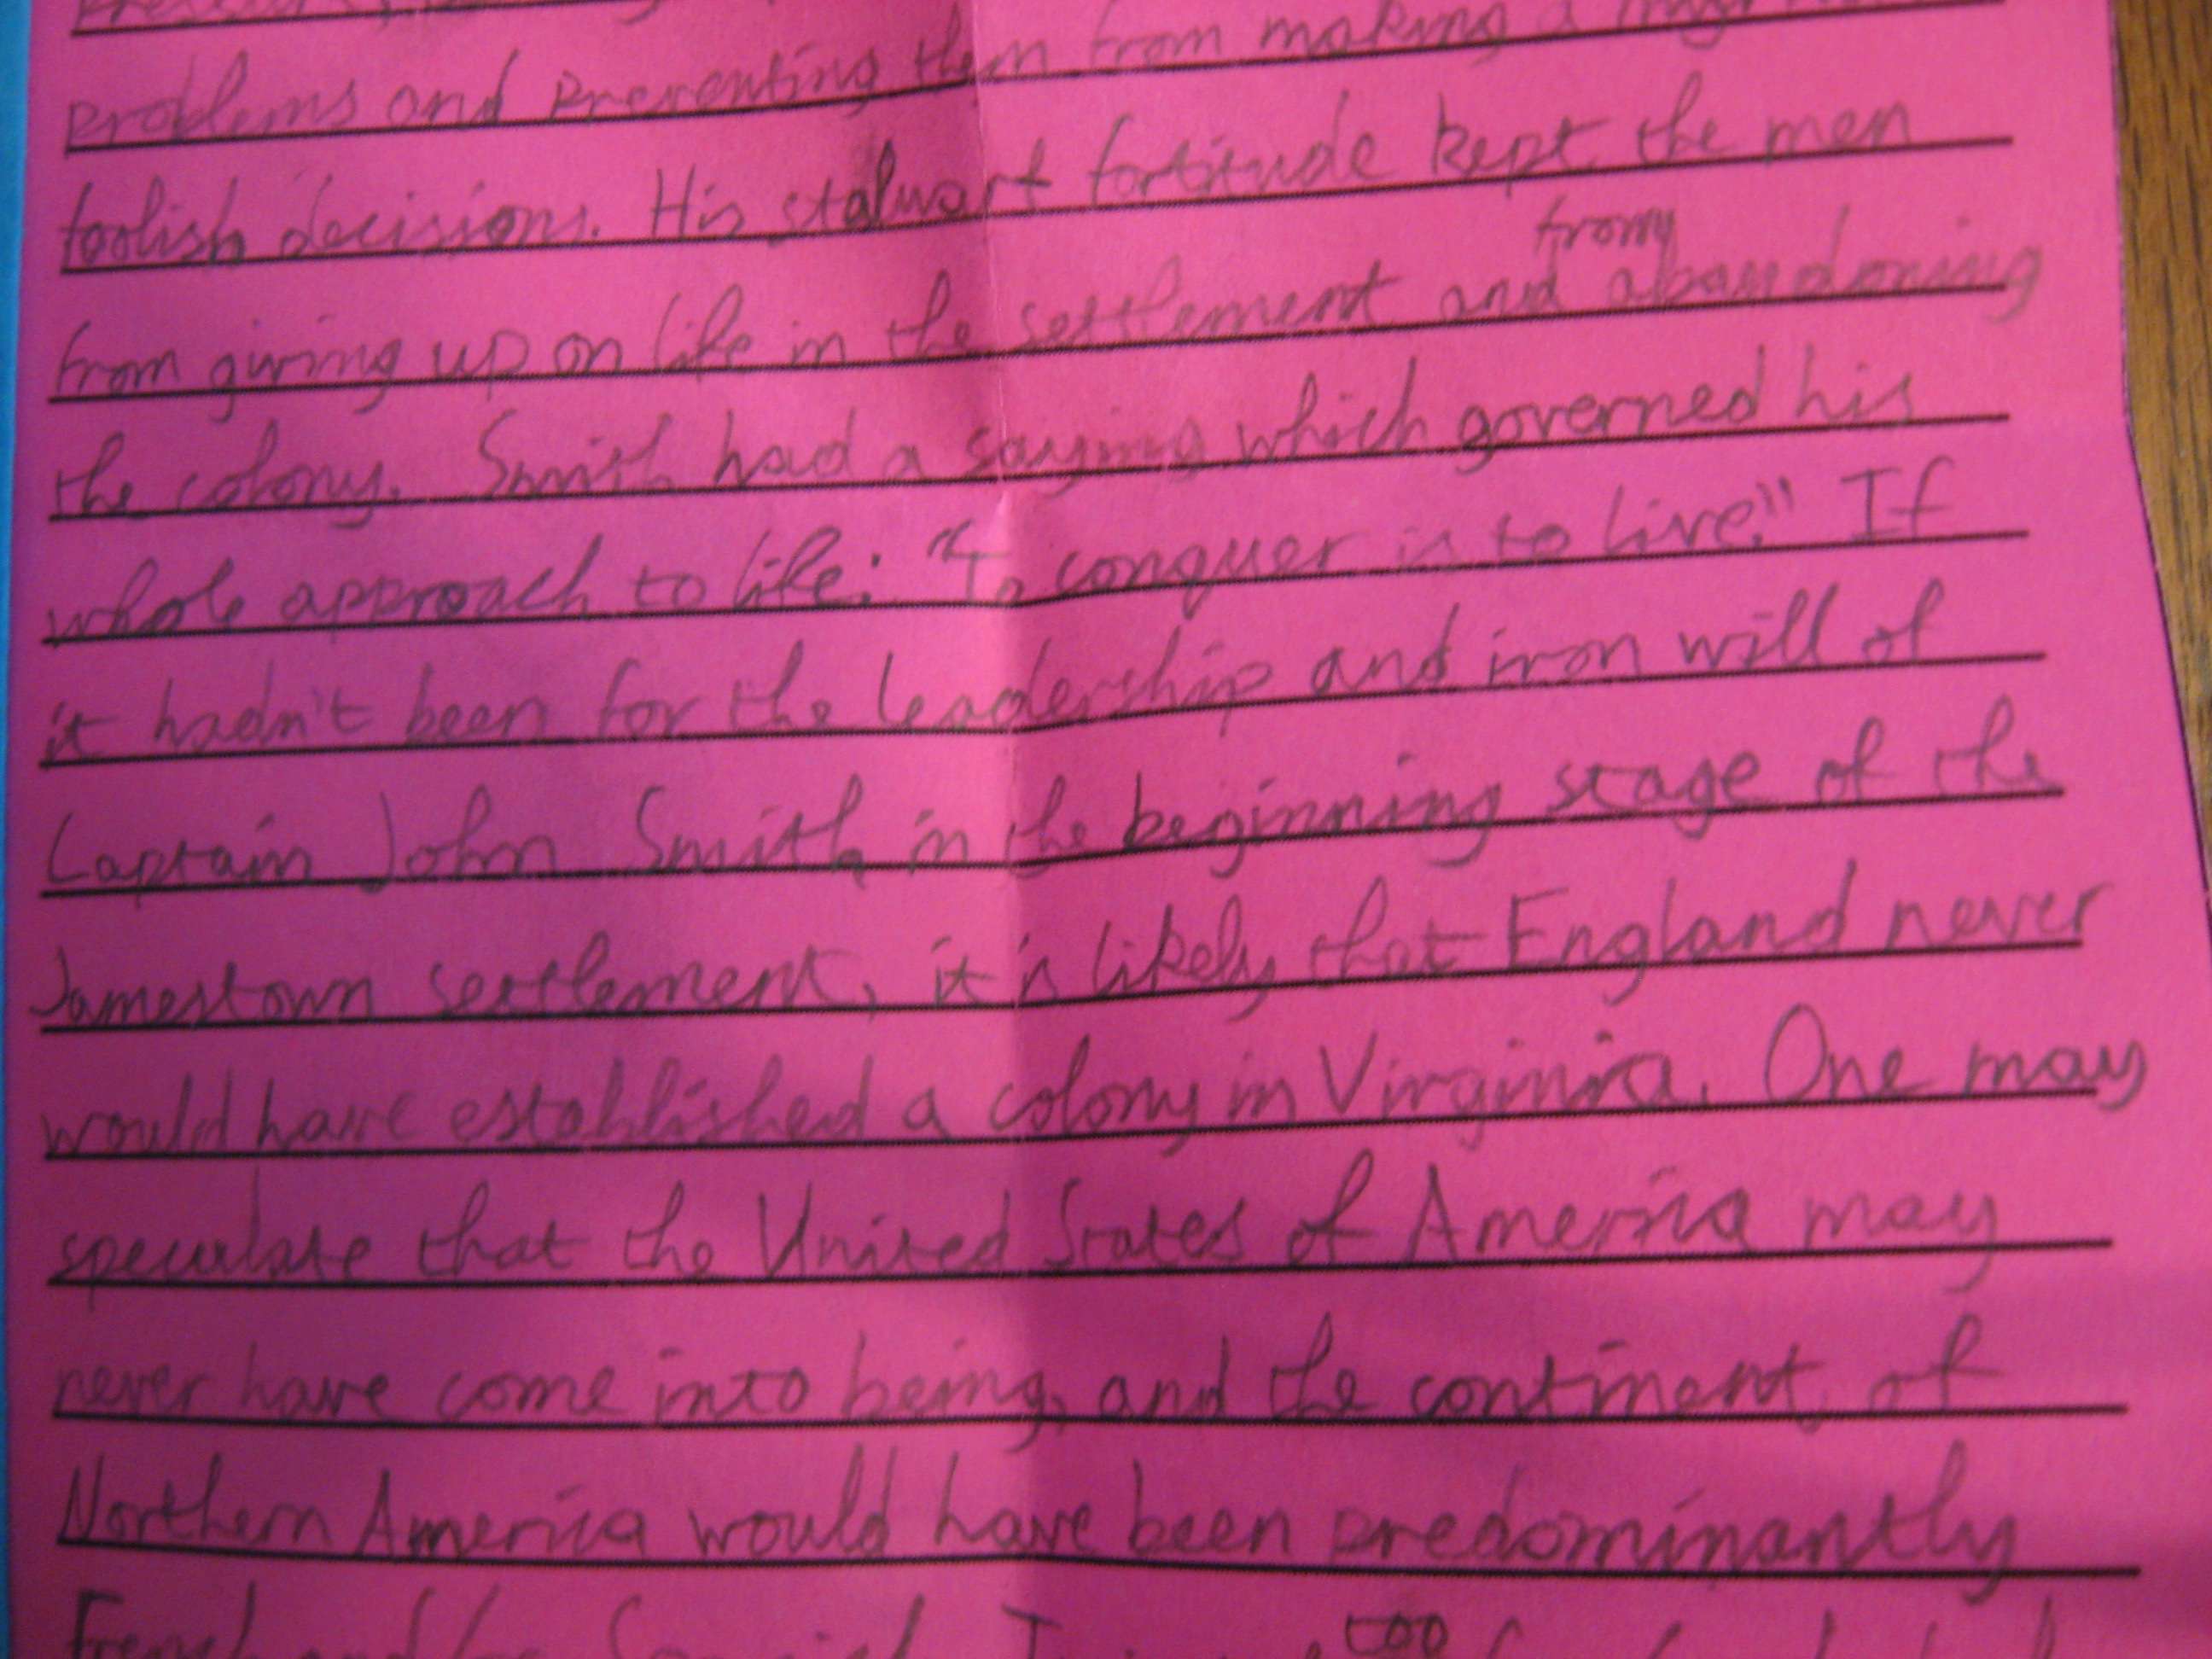 problems and preventing them from making a
foolish decisions. His stalwart fortitude kept the men
from
from giving up on life in the settlement and abandoning
the colony. Smith had a saying which governed his
whole approach to life: "To conquer is to live." If
it hadn't been for the leadership and iron will of
Captain John Smith, in the beginning stage of the
Jamestown settlement, it is likely that England never
would have established a colony in Virginia. One may
speculate that the United States of America may
never have come into being, and the continent of
Northern America would have been predominantly
too
French and/or